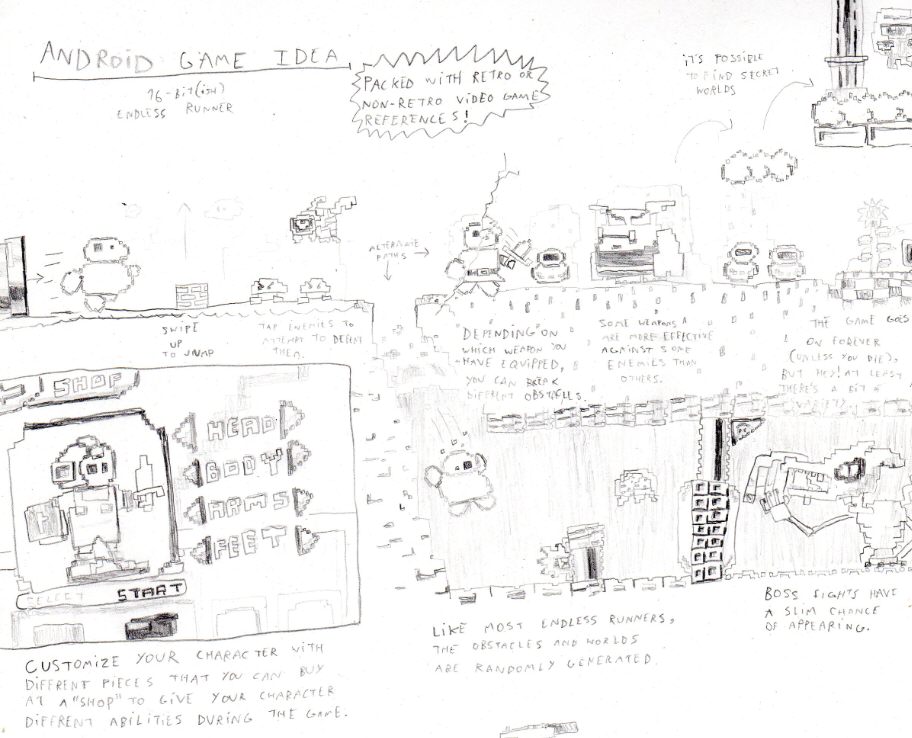 ANDROID GAME IDEA
16-BIT(ISH)
ENDLESS RUNNER
PACKED WITH RETRO OR
NON-RETRO VIDEO GAME
REFERENCES!
IT'S POSSIBLE
TO FIND SECRET
WORLDS
ALTERNATE
PATHS
SWIPE
UP
TO JUMP
TAP ENEMIES TO
ATTEMPT TO DEFEAT
THEM.
"DEPENDING" ON
WHICH WEAPON YOU
HAVE EQUIPPED,
YOU CAN BREAK
DIFFERENT OBSTACLES.
SOME WEAPONS
ARE MORE EFFECTIVE
AGAINST SOME
ENEMIES THAN
OTHERS.
THE GAME GOES
ON FOREVER
(UNLESS YOU DIE),
BUT HEY! AT LEAST
THERE'S A BIT OF
VARIETY.
SHOP
HEAD
BODY
ARMS
FEET
SELECT START
CUSTOMIZE YOUR CHARACTER WITH
DIFFERENT PIECES THAT YOU CAN BUY
AT A "SHOP" TO GIVE YOUR CHARACTER
DIFFERENT ABILITIES DURING THE GAME.
LIKE MOST ENDLESS RUNNERS,
THE OBSTACLES AND WORLDS
ARE RANDOMLY GENERATED.
BOSS FIGHTS HAVE
A SLIM CHANCE
OF APPEARING.